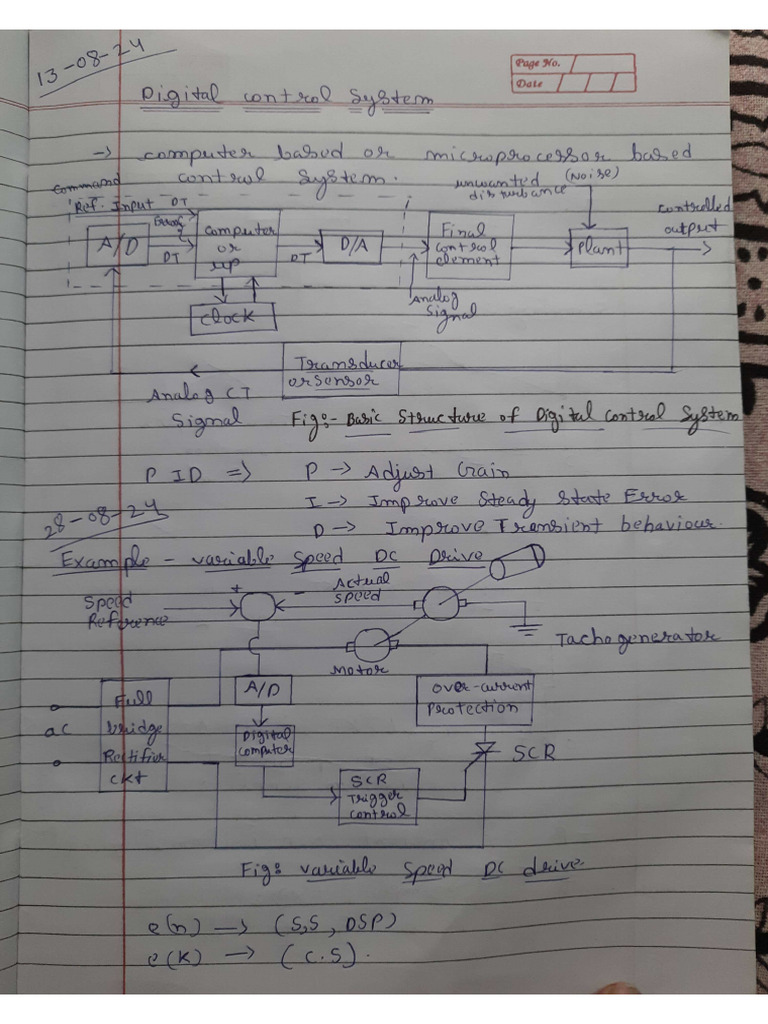 13-08-24
Page No.
Date
Digital control System
→ computer based or microprocessor based
control System.
command
Ref. Input DT
unwanted (Noise)
disturbance
controlled
output
Error
A/D
DT
computer
or
μp
DT
D/A
Final
control
element
Plant
Clock
Analog
Signal
Transducer
or sensor
Analog CT
Signal
Fig:- Basic Structure of Digital control System
PID => P → Adjust Gain
I → Improve Steady State Error
D → Improve Transient behaviour.
28-08-24
Example - variable Speed DC Drive
Speed
Reference
+
-
Actual
Speed
Tachogenerator
Motor
A/D
over-current
Protection
Full
bridge
Rectifier
ckt
ac
Digital
computer
SCR
SCR
Trigger
control
Fig: variable Speed DC drive
e(n) → (S.S, DSP)
e(K) → (C.S).